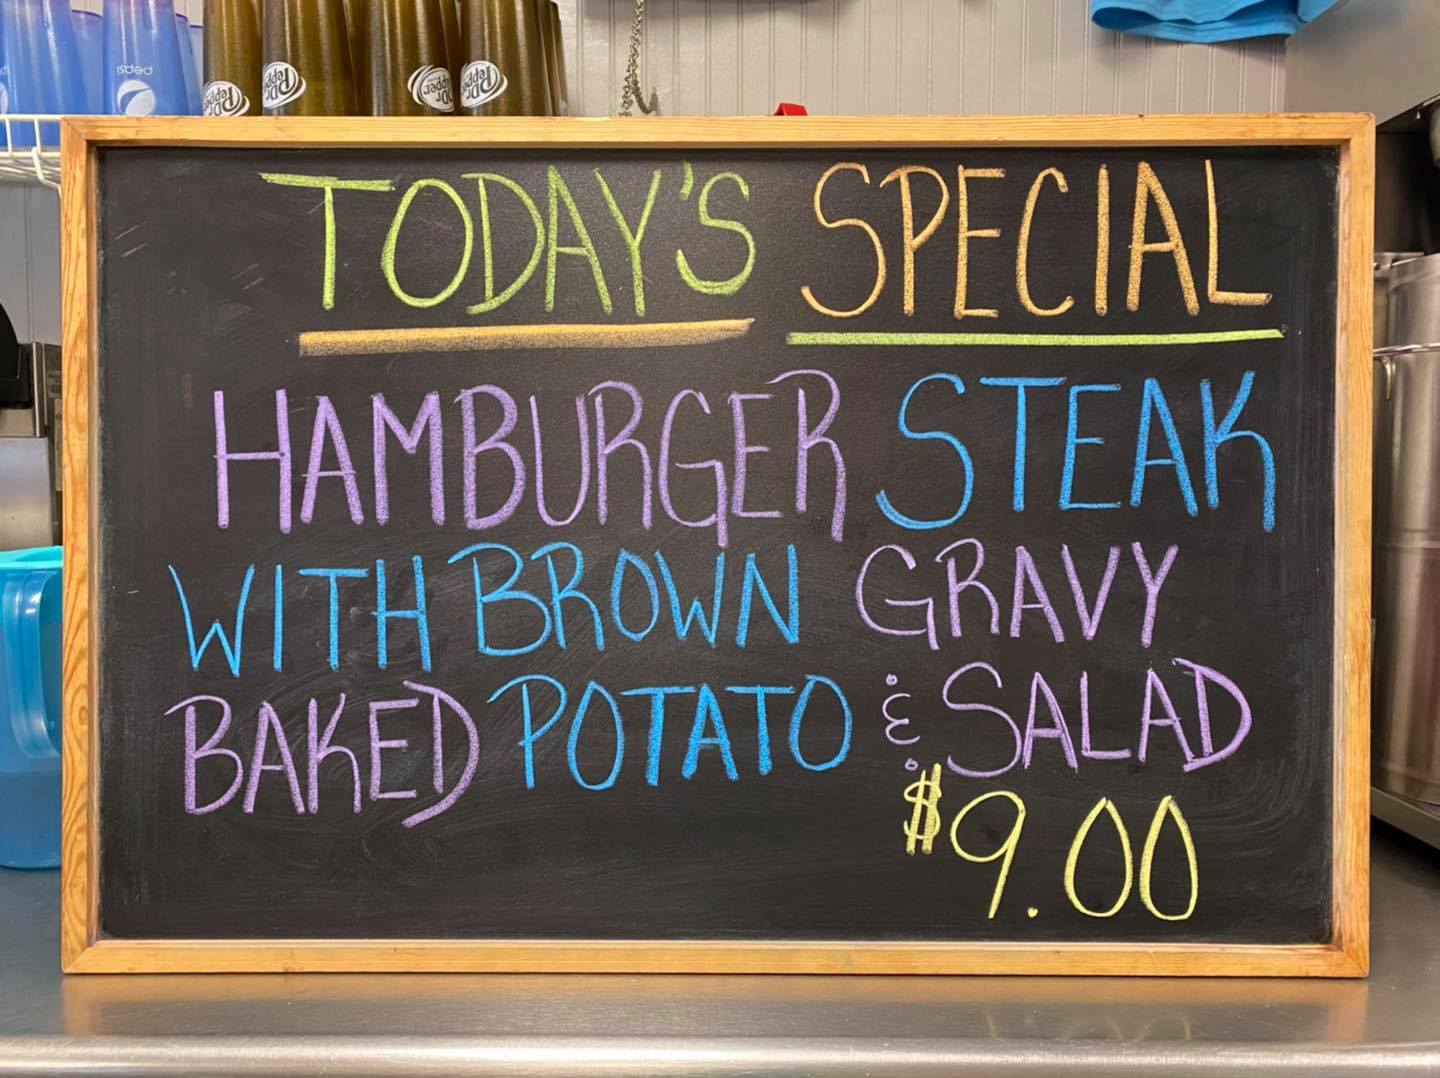 pepsi
Dr Pepper
Dr Pepper
Dr Pepper
Dr Pepper
TODAY'S SPECIAL
HAMBURGER STEAK
WITH BROWN GRAVY
BAKED POTATO & SALAD
$9.00